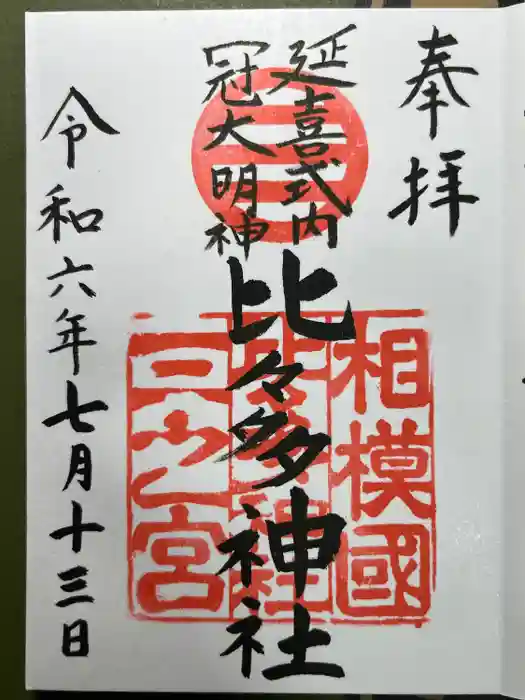 奉拝
延喜式内
冠大明神
比々多神社
令和六年七月十三日
相模國
三之宮